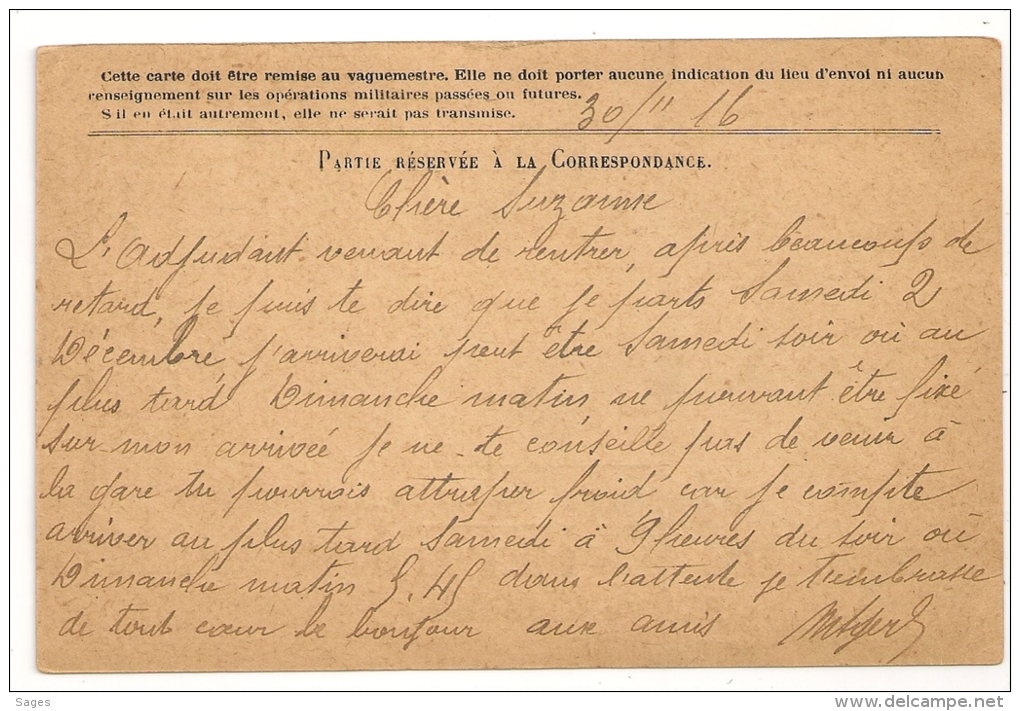 Cette carte doit être remise au vaguemestre. Elle ne doit porter aucune indication du lieu d'envoi ni aucun
renseignement sur les opérations militaires passées ou futures.
S'il en était autrement, elle ne serait pas transmise.
30/11 16
PARTIE RÉSERVÉE À LA CORRESPONDANCE.
Chère Suzanne
L'Adjudant venant de rentrer, après beaucoups de
retard, je puis te dire que je parts Samedi 2
Décembre, j'arriverai peut être Samedi soir ou au
plus tard Dimanche matin ne pouvant être fixé
sur mon arrivée je ne te conseille pas de venir à
la gare tu pourrais attraper froid car je compte
arriver au plus tard Samedi à 9 heures du soir ou
Dimanche matin 5.45 dans l'attente je t'embrasse
de tout cœur le bonjour aux amis
Sages
www.delcampe.net